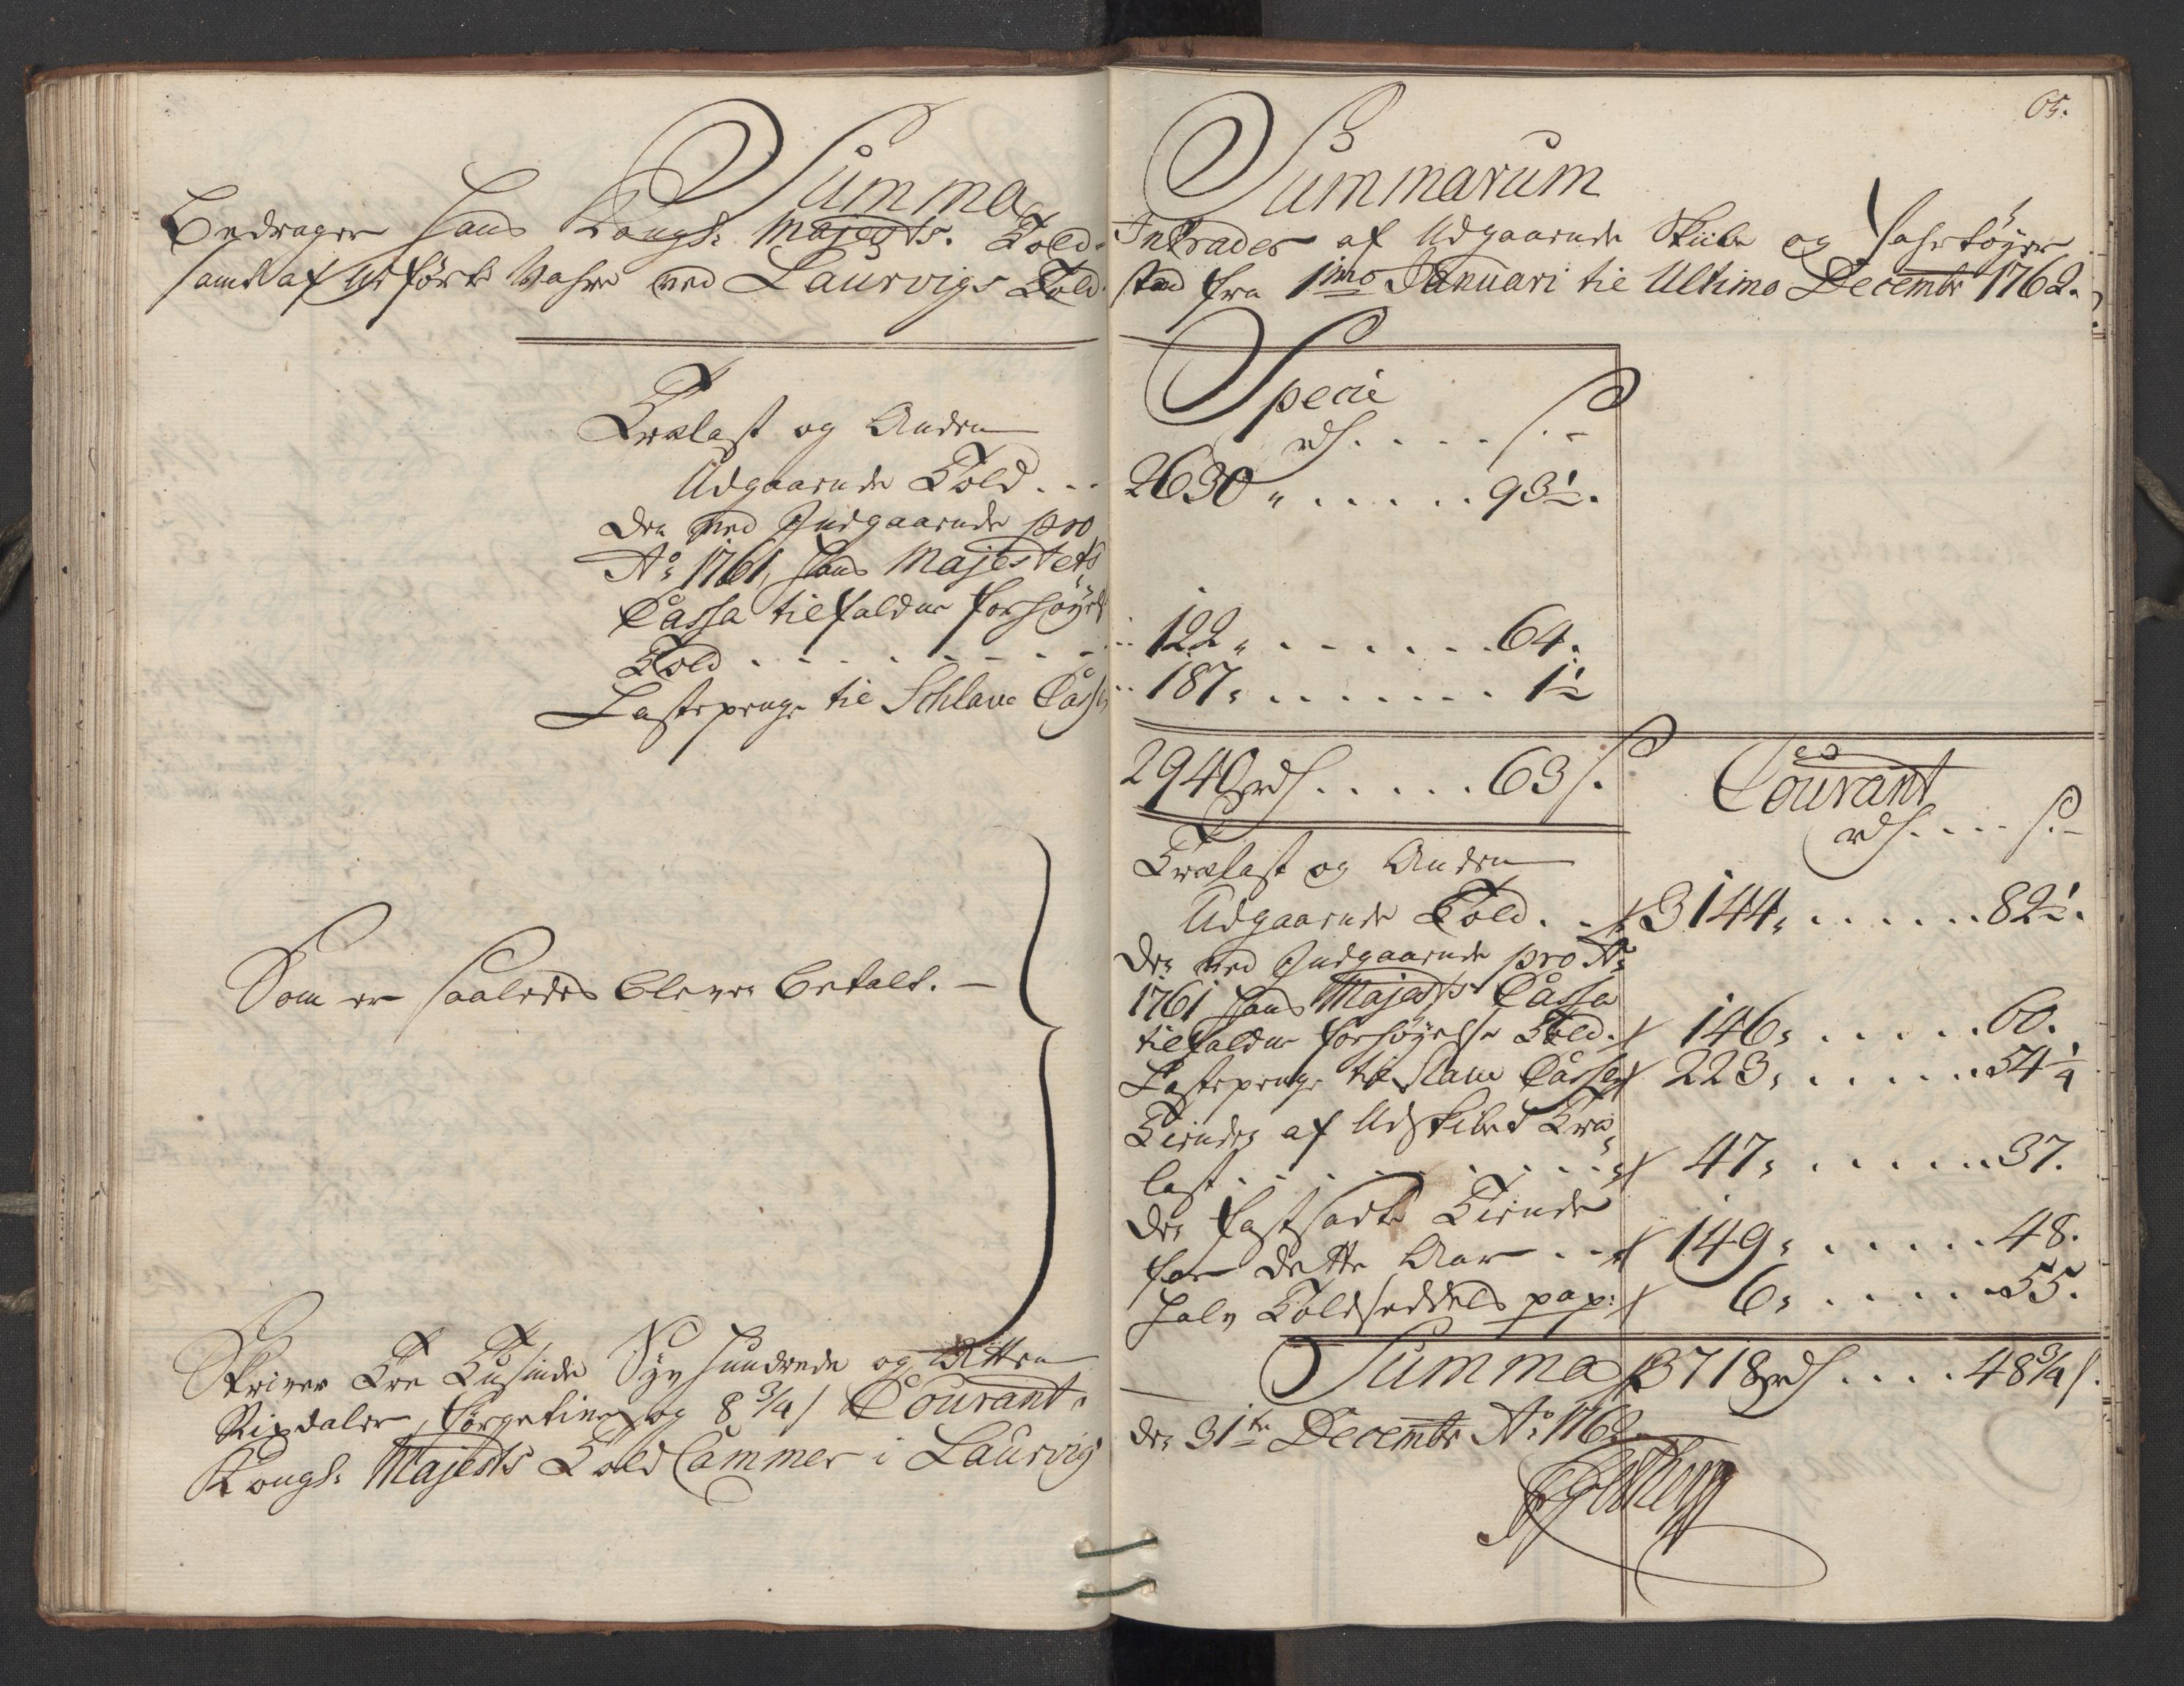 65.
Summa Summarum
Bedrager Hans Kongl: Majests. Told- Intrader af Udgaaende Skibe og Fahrtöyer
samt af Udförte Vahre ved Laurvigs Told- stæd fra 1mo Januari til Ultimo Decembr 1762.
Specie
rdl. . . . . s. -
Trælast og Anden
Udgaaende Told . . . 2630 „ . . . . . 93½.
Den ved Indgaaende pro
Ao: 1761, Hans Majestets
Cassa tilfaldne forhöyelse
Told . . . . . . . . . 122 „ . . . . . . 64.
Lastepenge til Schlave Cassen . . 187 „ . . . . . . . 1½
2940 rdl . . . . . 63 s.
Courant
rdl. . . . s. -
Trælast og Anden
Udgaaende Told . . 3144 „ . . . . . . 82½.
Den ved Indgaaende pro Ao:
1761 Hans Majests Cassa
tilfaldne forhöyelse Told . 146 „ . . . . . 60.
Lastepenge til Slave Cassen 223 „ . . . . . 54¼
Tiender af Udskibed Træ-
last . . . . . . . . . 47 „ . . . . . . 37.
Den fastsadte Tiende
for dette Aar . . . 149 „ . . . . . 48.
Halv Toldseddels pap: 6 „ . . . . . 55.
Som er saaledes bleven betalt. -
Summa 3718 rdl . . . . 48¾ s.
Skriver Tre Tusinde Syv Hundrede og Atten
Rixdaler,förgetive og 8¾ s Courant.
Kongl: Majests Told Cammer i Laurvig den 31te Decembr Ao: 1762.